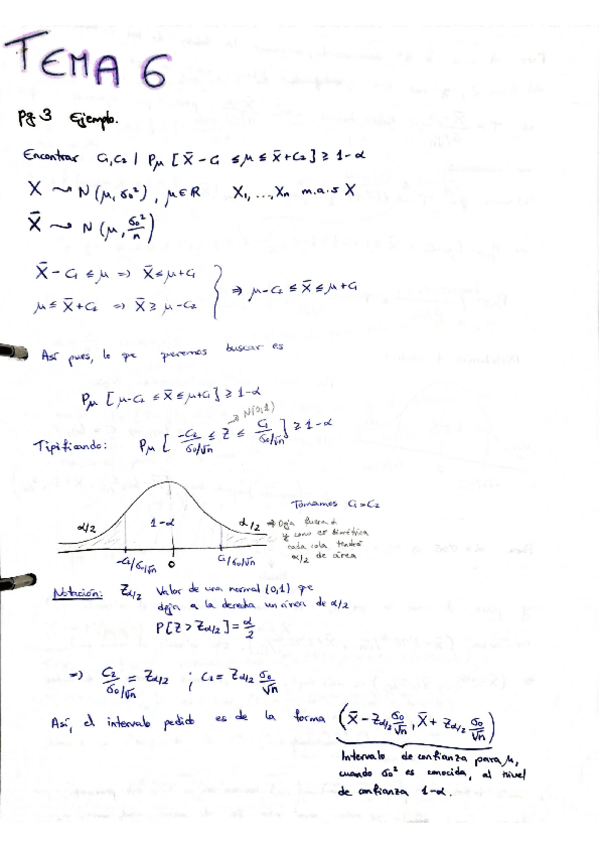 TEMA 6
Pg 3 Ejemplo.
Encontrar C₁,C₂ / Pμ [X̄ - C₁ ≤ μ ≤ X̄ + C₂] ≥ 1-α
X ~ N(μ, σ₀²), μ ∈ R X₁, ..., Xₙ m.a.s X
X̄ ~ N(μ, σ₀²/n)
X̄ - C₁ ≤ μ ⇒ X̄ ≤ μ + C₁
μ ≤ X̄ + C₂ ⇒ X̄ ≥ μ - C₂
} ⇒ μ - C₂ ≤ X̄ ≤ μ + C₁
Así pues, lo que queremos buscar es
Pμ [μ - C₂ ≤ X̄ ≤ μ + C₁] ≥ 1-α
→ N(0,1)
Tipificando: Pμ [-C₂/σ₀/√n ≤ Z ≤ C₁/σ₀/√n] ≥ 1-α
Tomamos C₁ = C₂
α/2 1-α α/2 ⇒ Deja fuera α
y como es simétrica
cada cola tendrá
α/2 de área
-C₂/σ₀/√n 0 C₁/σ₀/√n
Notación: Zα/2 Valor de una normal (0,1) que
deja a la derecha un área de α/2
P[Z > Zα/2] = α/2
⇒ C₂/σ₀/√n = Zα/2 ; C₂ = Zα/2 σ₀/√n
Así, el intervalo pedido es de la forma (X̄ - Zα/2 σ₀/√n, X̄ + Zα/2 σ₀/√n)
Intervalo de confianza para μ,
cuando σ₀² es conocida, al nivel
de confianza 1-α.